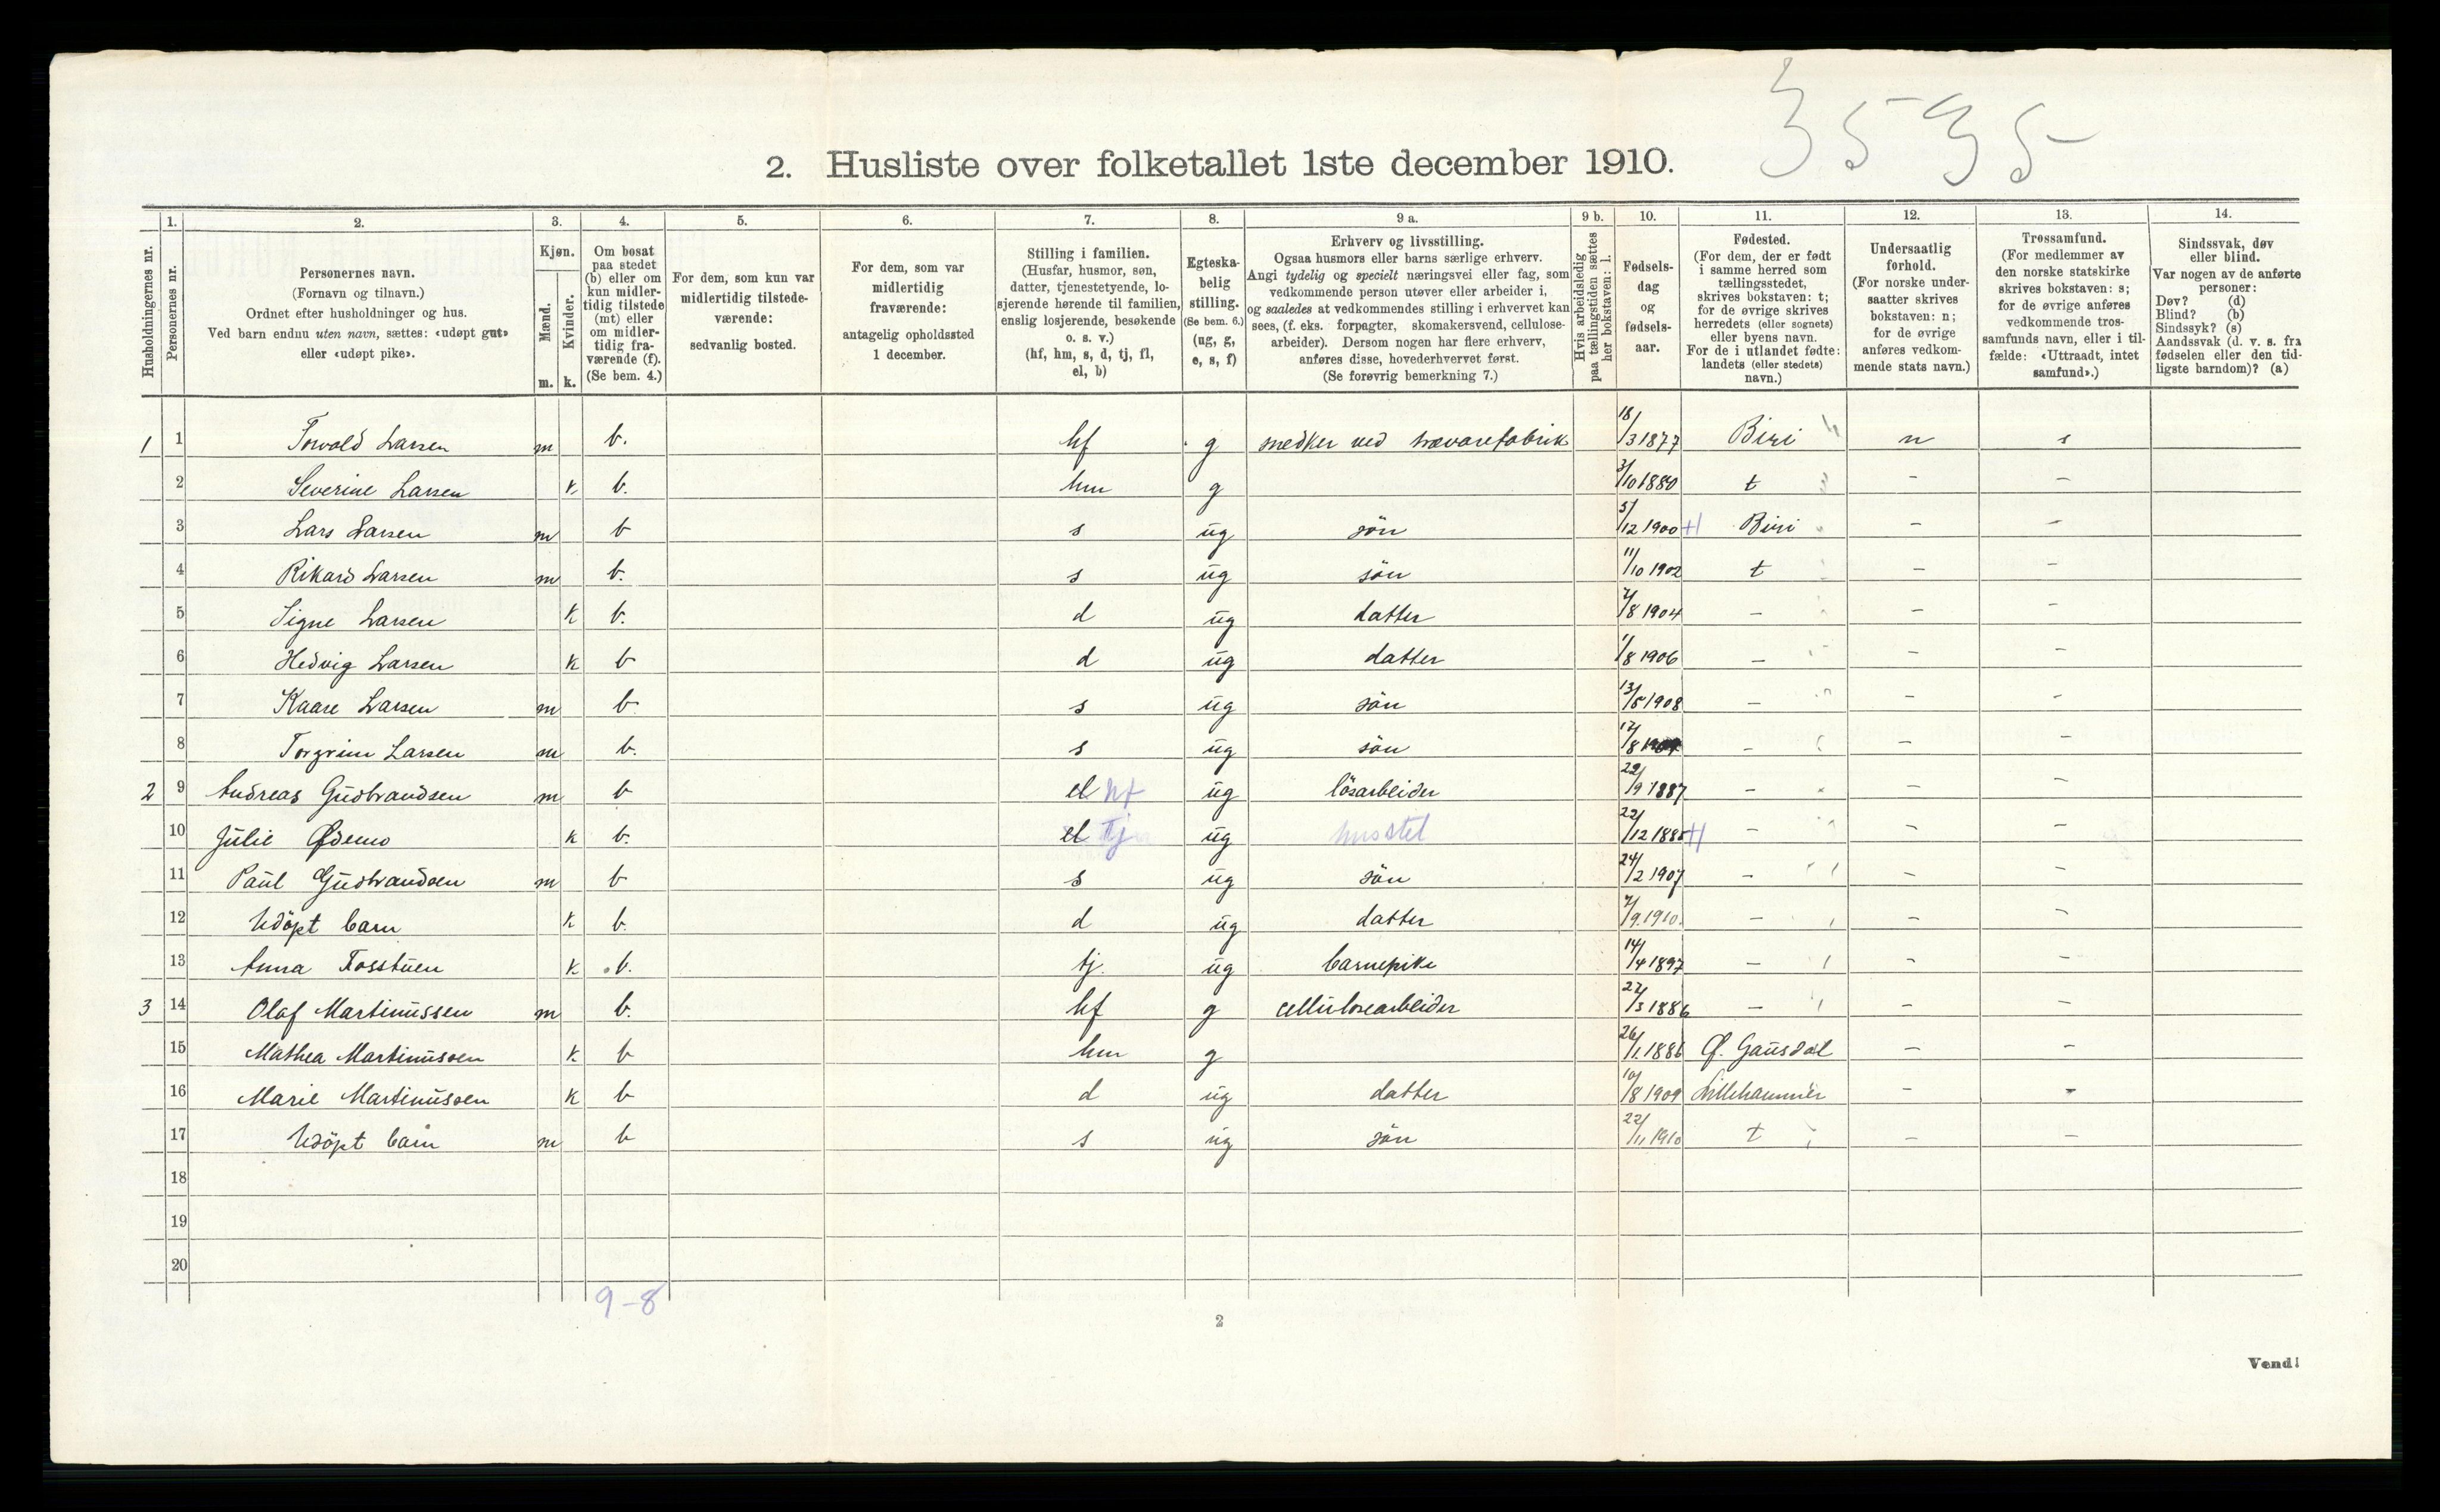 3535
2. Husliste over folketallet 1ste december 1910.
Husholdningernes nr.
1. Personernes nr.
2. Personernes navn. (Fornavn og tilnavn.) Ordnet efter husholdninger og hus. Ved barn endnu uten navn, sættes: «udøpt gut» eller «udøpt pike».
3. Kjøn. Mænd. m. Kvinder. k.
4. Om bosat paa stedet (b) eller om kun midlertidig tilstede (mt) eller om midlertidig fraværende (f). (Se bem. 4.)
5. For dem, som kun var midlertidig tilstedeværende: sedvanlig bosted.
6. For dem, som var midlertidig fraværende: antagelig opholdssted 1 december.
7. Stilling i familien. (Husfar, husmor, søn, datter, tjenestetyende, losjerende hørende til familien, enslig losjerende, besøkende o. s. v.) (hf, hm, s, d, tj, fl, el, b)
8. Egteskabelig stilling. (Se bem. 6.) (ug, g, e, s, f)
9 a. Erhverv og livsstilling. Ogsaa husmors eller barns særlige erhverv. Angi tydelig og specielt næringsvei eller fag, som vedkommende person utøver eller arbeider i, og saaledes at vedkommendes stilling i erhvervet kan sees, (f. eks. forpagter, skomakersvend, cellulosearbeider). Dersom nogen har flere erhverv, anføres disse, hovederhvervet først. (Se forøvrig bemerkning 7.)
9 b. Hvis arbeidsledig paa tællingstiden sættes her bokstaven: l.
10. Fødselsdag og fødselsaar.
11. Fødested. (For dem, der er født i samme herred som tællingsstedet, skrives bokstaven: t; for de øvrige skrives herredets (eller sognets) eller byens navn. For de i utlandet fødte: landets (eller stedets) navn.)
12. Undersaatlig forhold. (For norske undersaatter skrives bokstaven: n; for de øvrige anføres vedkommende stats navn.)
13. Trossamfund. (For medlemmer av den norske statskirke skrives bokstaven: s; for de øvrige anføres vedkommende trossamfunds navn, eller i tilfælde: «Uttraadt, intet samfund».)
14. Sindssvak, døv eller blind. Var nogen av de anførte personer: Døv? (d) Blind? (b) Sindssyk? (s) Aandssvak (d. v. s. fra fødselen eller den tidligste barndom)? (a)
1 1 Torvald Larsen m b. hf g snedker ved trævarefabrik 18/3 1877 Biri n s
2 Severine Larsen k b. hm g 3/10 1880 t - -
3 Lars Larsen m b s ug sön 5/12 1900 Biri - -
4 Rikard Larsen m b. s ug sön 11/10 1902 t - -
5 Signe Larsen k b. d ug datter /8 1904 - - -
6 Hedvig Larsen k b d ug datter 1/8 1906 - - -
7 Kaare Larsen m b s ug sön 13/5 1908 - - -
8 Torgrim Larsen m b. s ug sön /8 - - -
2 9 Andreas Gudbrandsen m b el hf ug lösarbeider 22/9 1887 - - -
10 Julie Ødemo k b. el Tj ug husstel 22/12 188 - - -
11 Paul Gudbrandsen m b s ug sön 24/2 1907 - - -
12 Udöpt barn k b. d ug datter /9 1910. - - -
13 Anna Fosstuen k b. tj. ug barnepike 14/4 1897 - - -
3 14 Olaf Martinussen m b. hf g cellulosearbeider 27/3 1886 - - -
15 Mathea Martinussen k b hm g 26/1 1886 Ø. Gausdal - -
16 Marie Martinussen k b d ug datter 10/8 1909 Lillehammer - -
17 Udöpt barn m b s ug sön 22/11 1910 t - -
18
19
20
9-8
2
Vend!